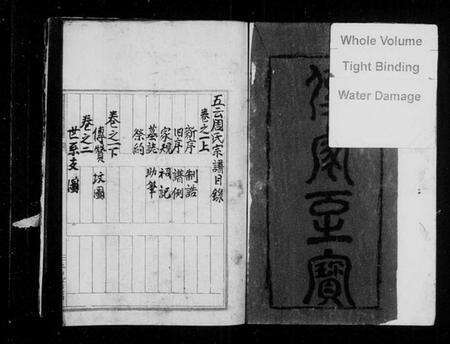 Whole Volume
Tight Binding
Water Damage
傳家至寶
五云周氏宗譜目錄
卷之上
新序 制誥
旧序 譜例
家規 祠記
墓誌 助筆
祭約
卷之下
傳贊 坟圖
卷之二
世系支圖